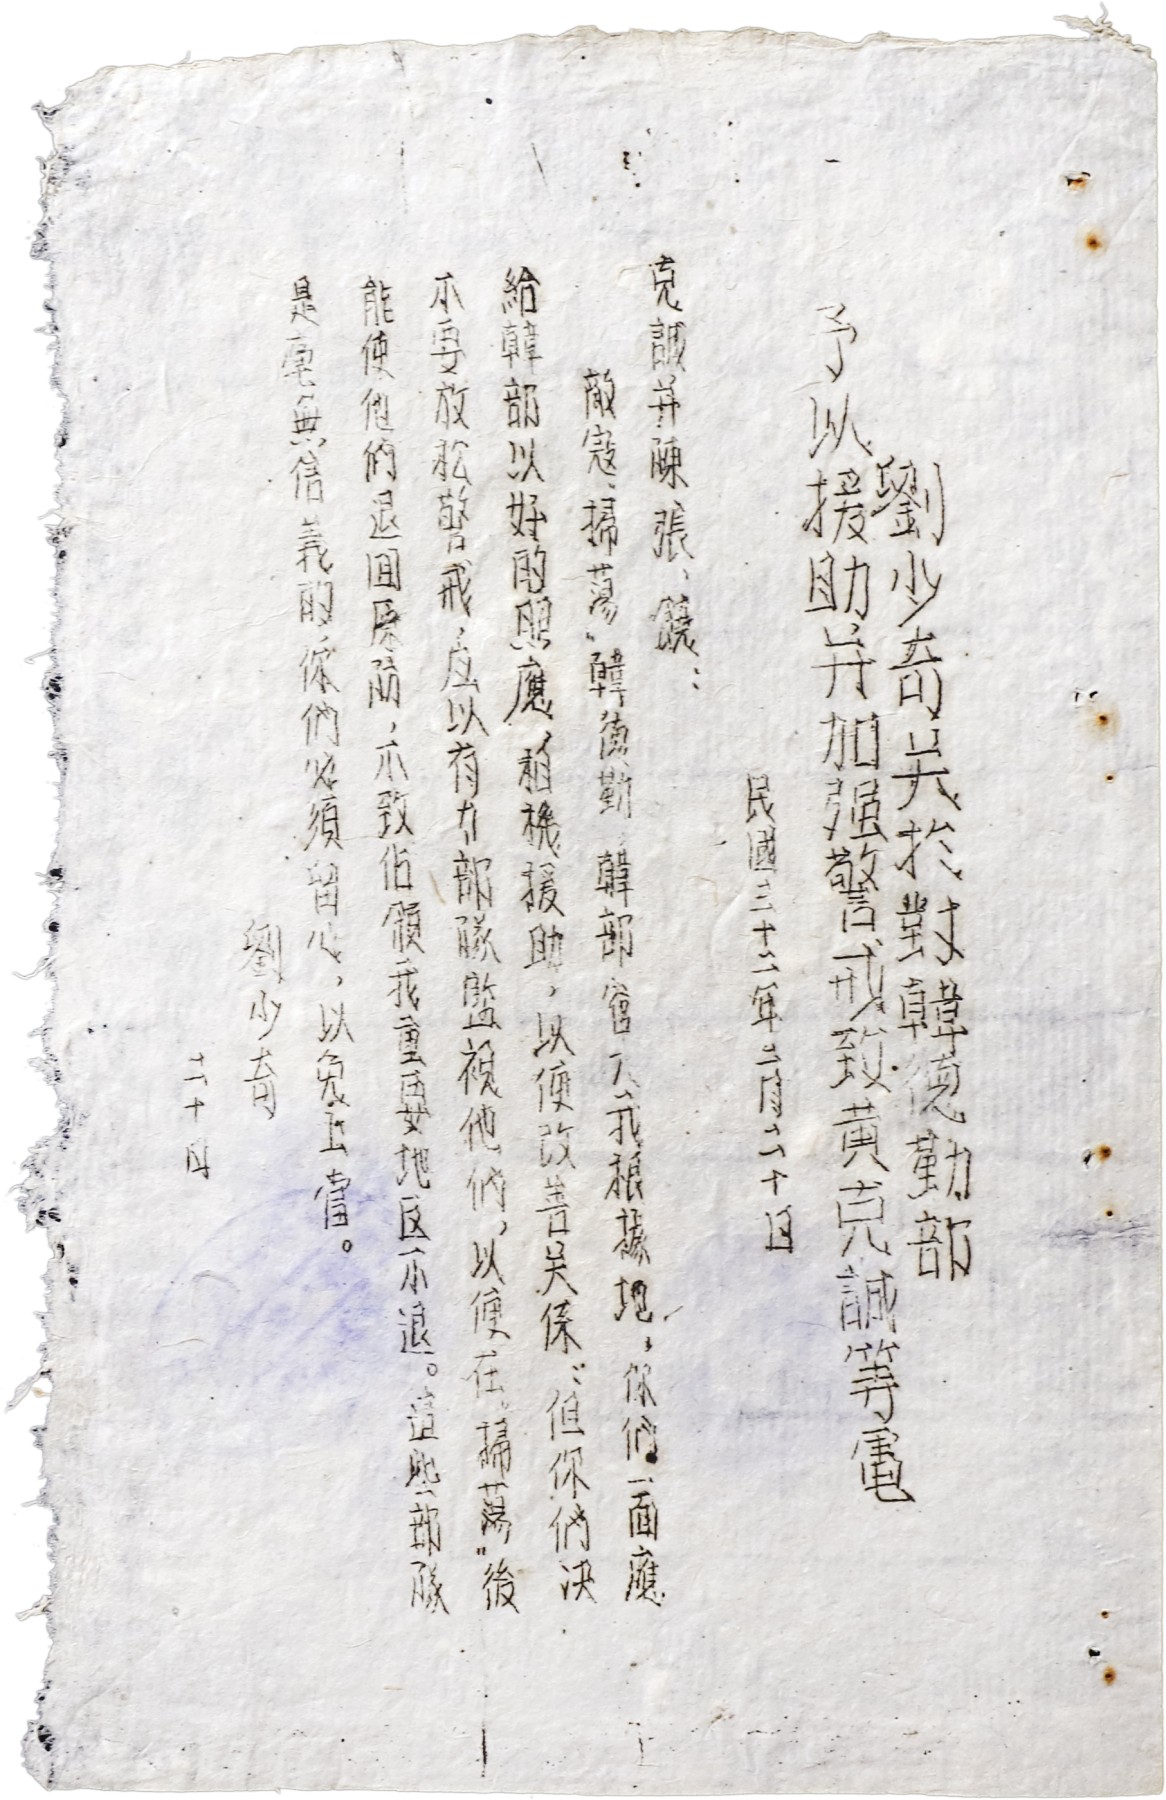 劉少奇关於對韓德勤部
予以援助并加强警戒致黄克誠等電
民國三十二年二月二十日
克誠并陳、張、饒：
敵寇“掃蕩”韓德勤，韓部窜入我根據地，你們一面應
給韓部以好的照應，相機援助，以便改善关係；但你們决
不要放松警戒，应以有力部隊監視他們，以便在“掃蕩”後
能使他們退回原防，不致佔領我重要地区不退。這些部隊
是毫無信義的，你們必須留心，以免上當。
劉少奇
二十日